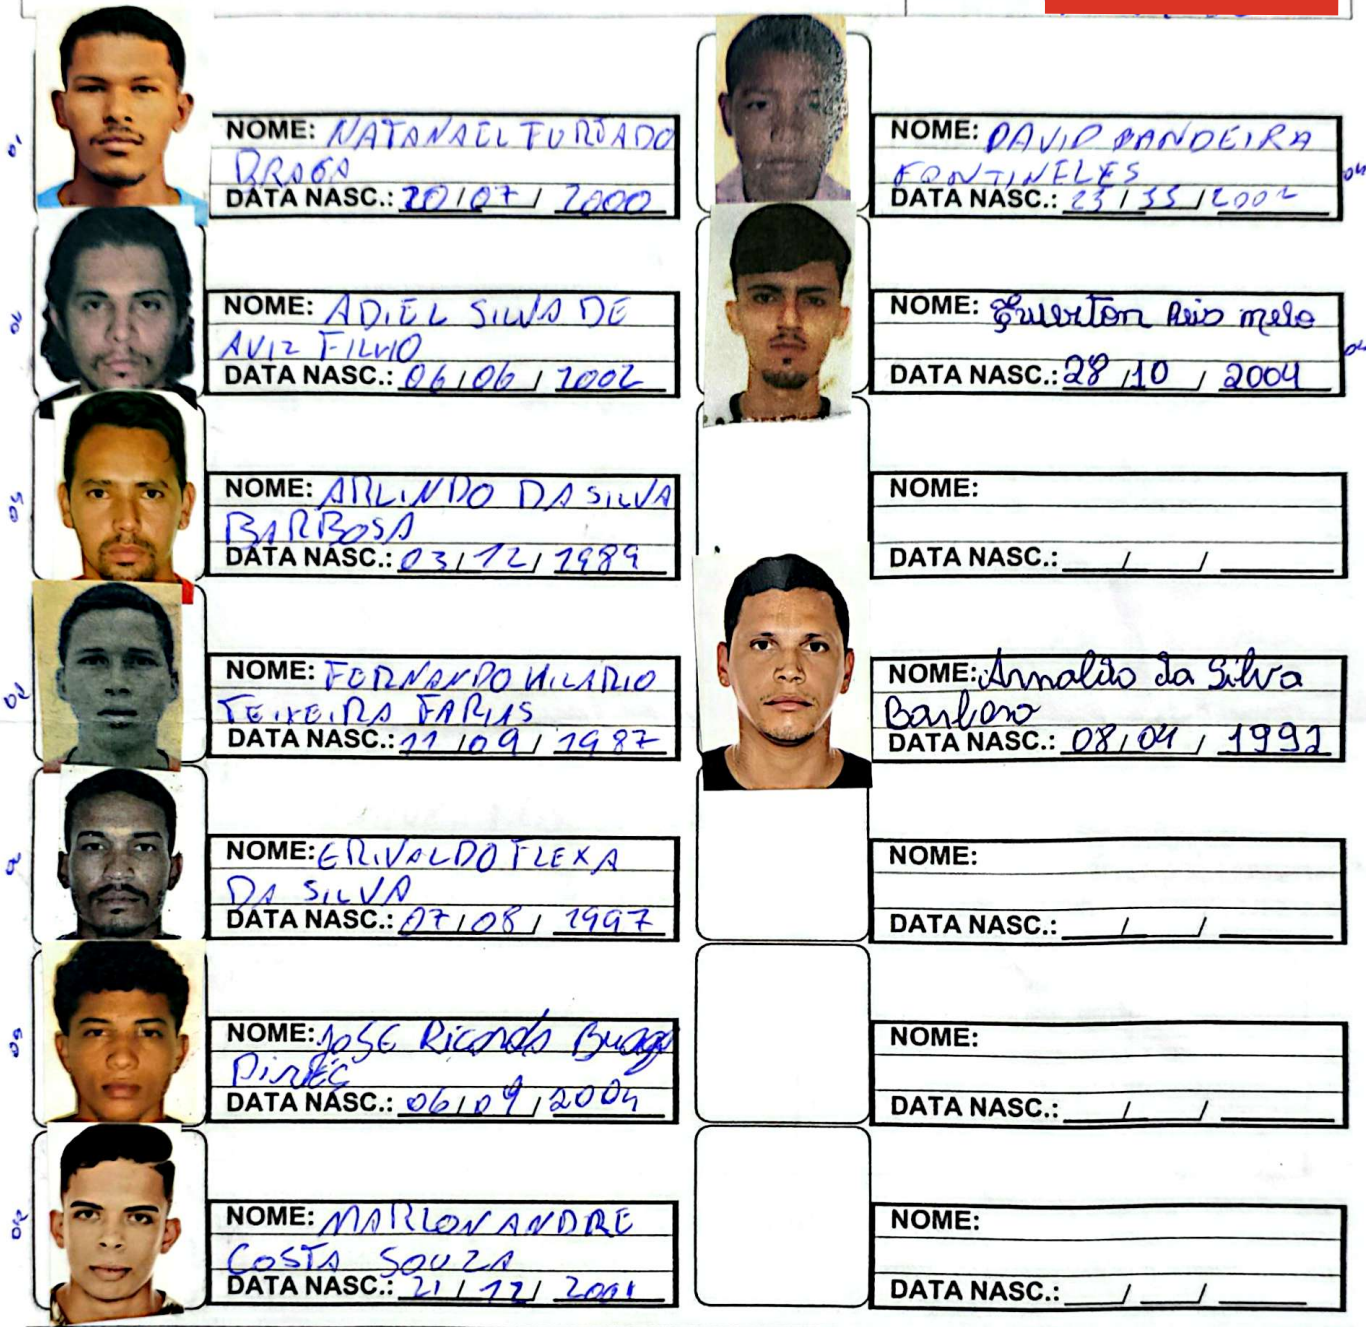 NOME: NATANAEL FURTADO
BRAGA
DATA NASC.: 20/07/2000
NOME: ADIEL SILVA DE
AVIZ FILHO
DATA NASC.: 06/06/2002
NOME: ARLINDO DA SILVA
BARBOSA
DATA NASC.: 03/12/1989
NOME: FERNANDO HILARIO
TEIXEIRA FARIAS
DATA NASC.: 11/09/1987
NOME: ERIVALDO FLEXA
DA SILVA
DATA NASC.: 07/08/1997
NOME: JOSE Ricardo Braga
DATA NASC.: 06/09/2004
NOME: MARLON ANDRE
COSTA SOUZA
DATA NASC.: 21/12/2001
NOME: DAVID BANDEIRA
FONTINELES
DATA NASC.: 23/ /2002
NOME: Reis melo
DATA NASC.: 28/10/2004
NOME:
DATA NASC.: / /
NOME: Arnaldo da Silva
DATA NASC.: 08/04/1992
NOME:
DATA NASC.: / /
NOME:
DATA NASC.: / /
NOME:
DATA NASC.: / /